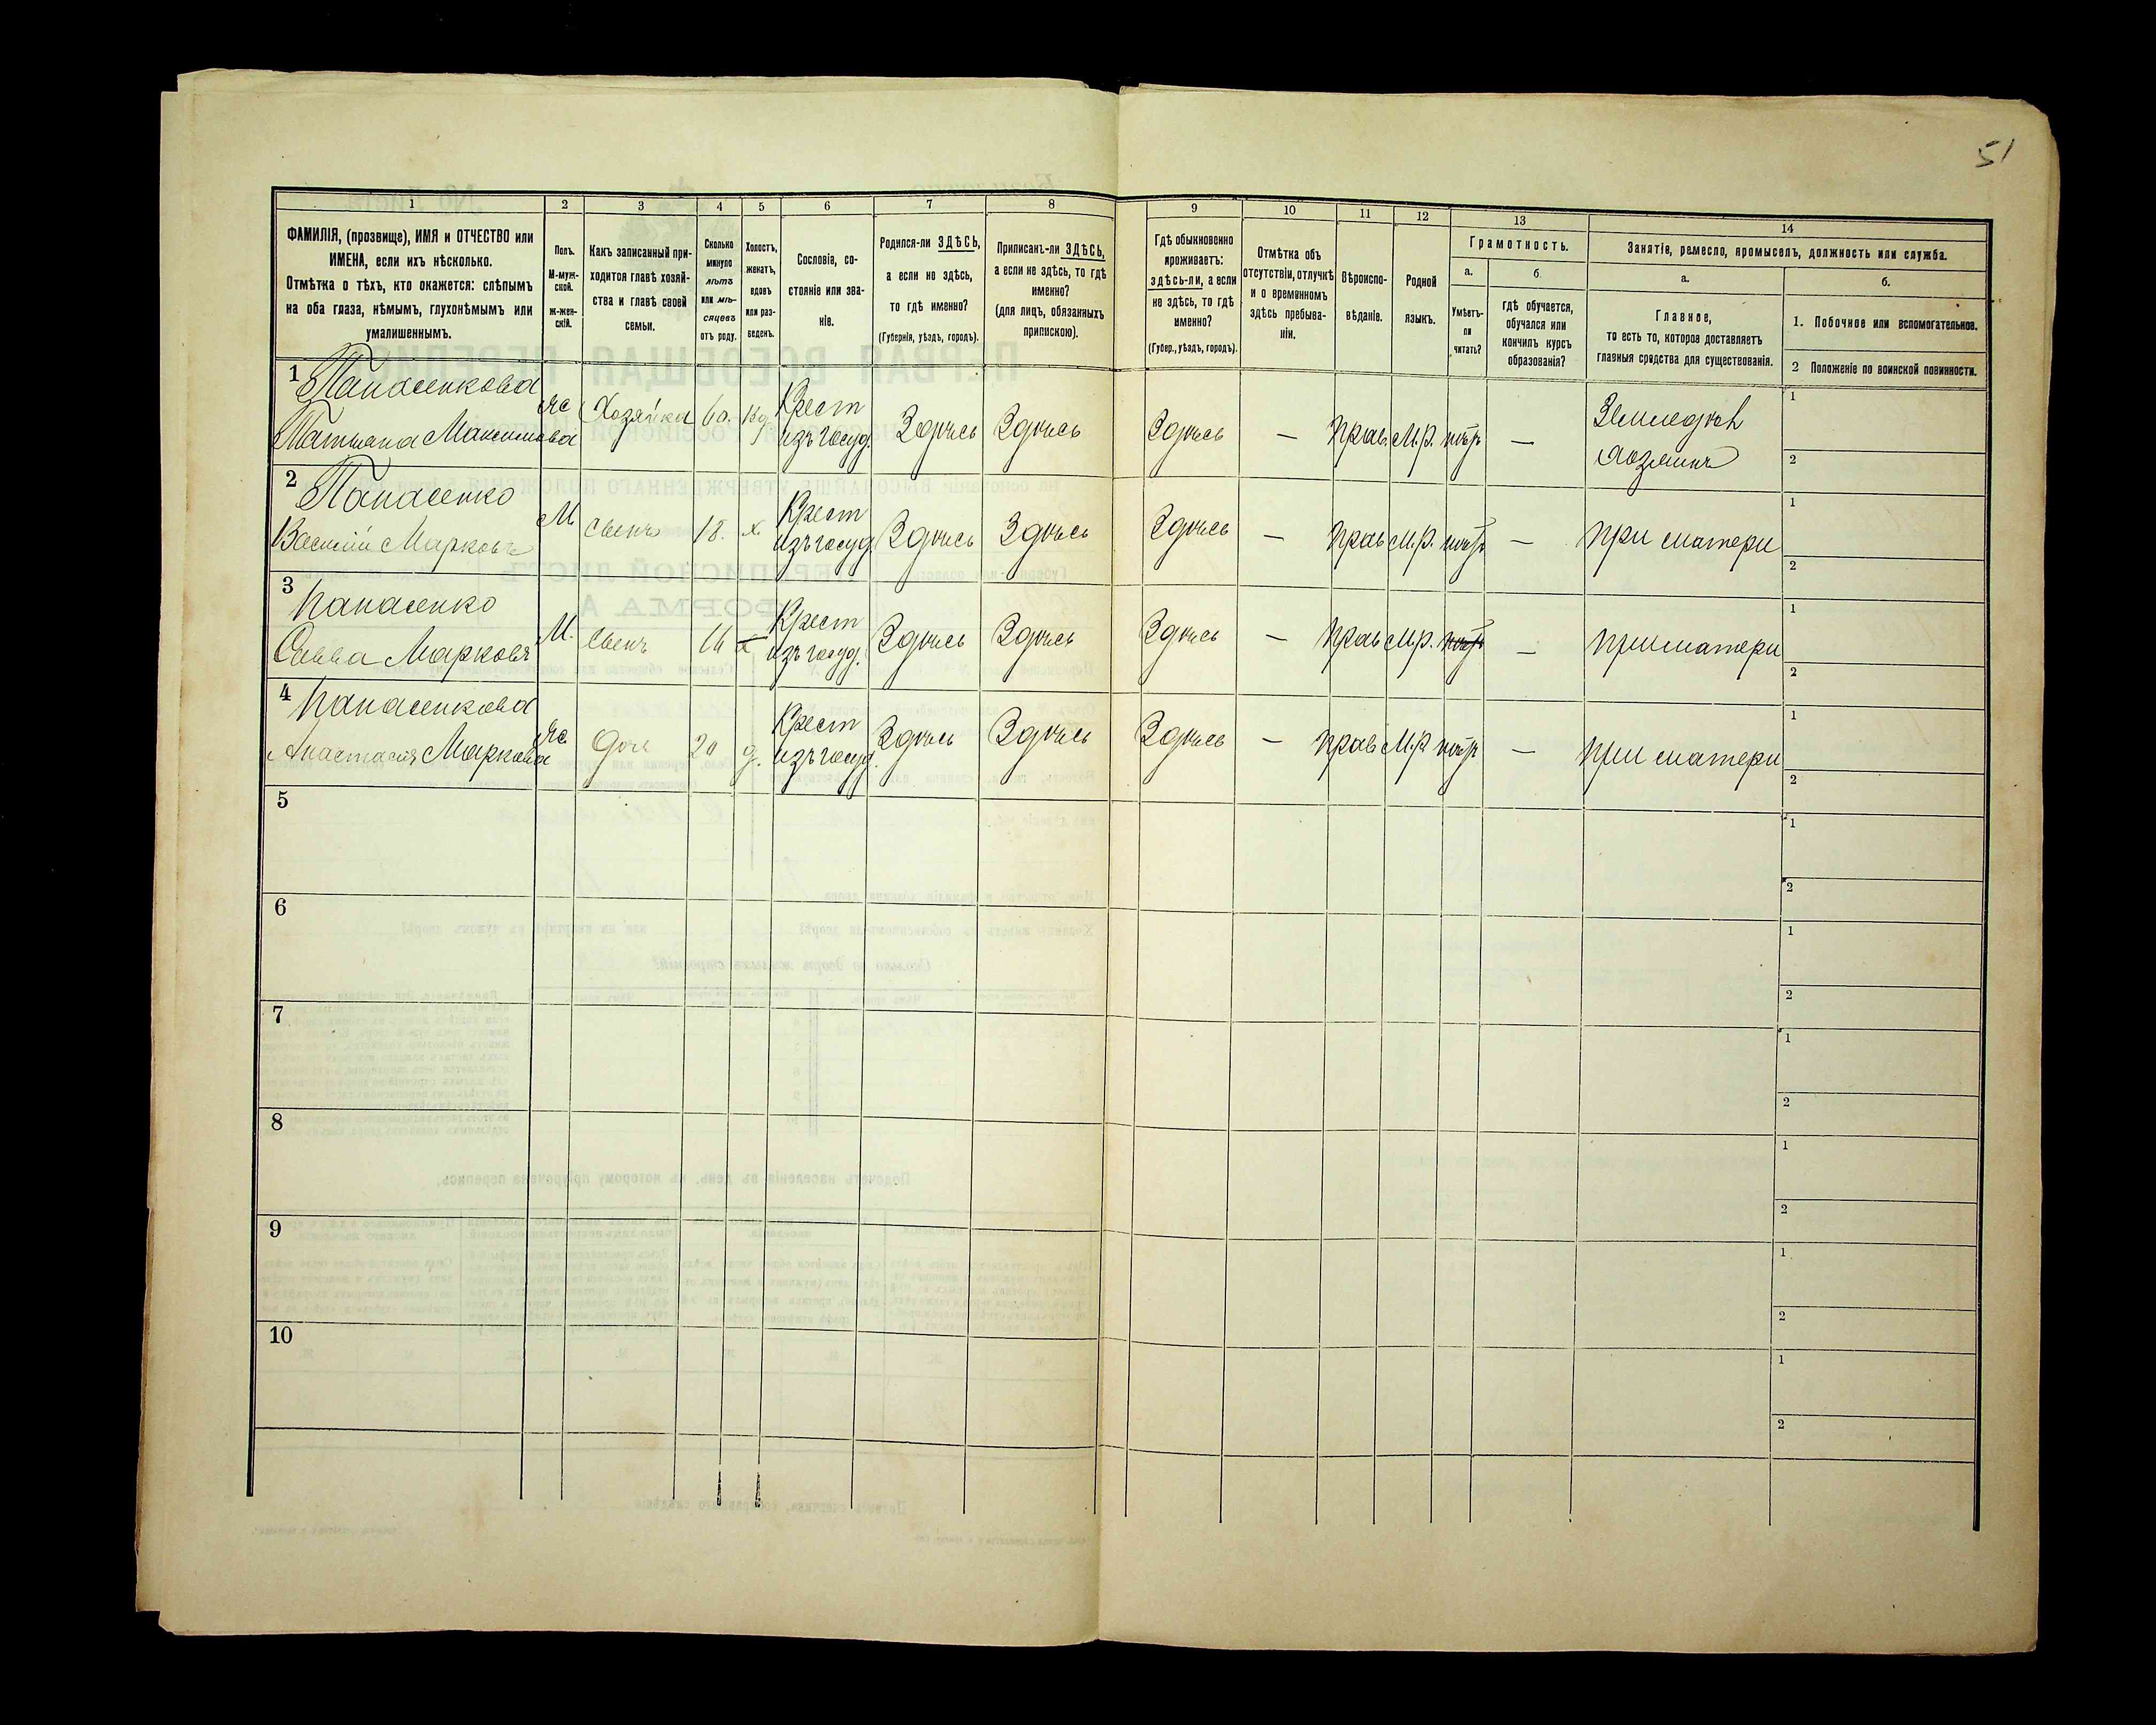 51
1
2
3
4
5
6
7
8
9
10
11
12
13
14
ФАМИЛІЯ, (прозвище), ИМЯ и ОТЧЕСТВО или
ИМЕНА, если ихъ нѣсколько.
Отмѣтка о тѣхъ, кто окажется: слѣпымъ
на оба глаза, нѣмымъ, глухонѣмымъ или
умалишеннымъ.
Полъ.
М-муж-
ской.
ж-жен-
скій.
Какъ записанный при-
ходится главѣ хозяй-
ства и главѣ своей
семьи.
Сколько
минуло
лѣтъ
или мѣ-
сяцевъ
отъ роду.
Холостъ,
женатъ,
вдовъ
или раз-
веденъ.
Сословіе, со-
стояніе или зва-
ніе.
Родился-ли ЗДѢСЬ,
а если не здѣсь,
то гдѣ именно?
(Губернія, уѣздъ, городъ).
Приписанъ-ли ЗДѢСЬ,
а если не здѣсь, то гдѣ
именно?
(для лицъ, обязанныхъ
припискою).
Гдѣ обыкновенно
проживаетъ:
здѣсь-ли, а если
не здѣсь, то гдѣ
именно?
(Губер., уѣздъ, городъ).
Отмѣтка объ
отсутствіи, отлучкѣ
и о временномъ
здѣсь пребыва-
ніи.
Вѣроиспо-
вѣданіе.
Родной
языкъ.
Грамотность.
а.
Умѣетъ-
ли
читать?
б.
гдѣ обучается,
обучался или
кончилъ курсъ
образованія?
Занятіе, ремесло, промыселъ, должность или служба.
а.
Главное,
то есть то, которое доставляетъ
главныя средства для существованія.
б.
1. Побочное или вспомогательное.
2 Положеніе по воинской повинности.
1 Панасенкова
Татьяна Максимова
Ж
Хозяйка
60.
Вд
Крест
изъ госуд.
Здѣсь
Здѣсь
Здѣсь
—
Прав.
М.р.
нѣтъ
—
Земледѣл
хозяинъ
1
2
2 Панасенко
Василій Марковъ
М
Сынъ
18.
х
Крест
изъ госуд
Здѣсь
Здѣсь
Здѣсь
—
Прав
М.р.
нѣтъ
—
при матери
1
2
3 Панасенко
Савва Марковъ
М.
Сынъ
16
х
Крест
изъ госуд.
Здѣсь
Здѣсь
Здѣсь
—
Прав
М.р.
нѣтъ
—
при матери
1
2
4 Панасенкова
Анастасія Маркова
Ж
дочь
20
д.
Крест
изъ госуд.
Здѣсь
Здѣсь
Здѣсь
—
Прав
М.р
нѣтъ
—
при матери
1
2
5
1
2
6
1
2
7
1
2
8
1
2
9
1
2
10
1
2